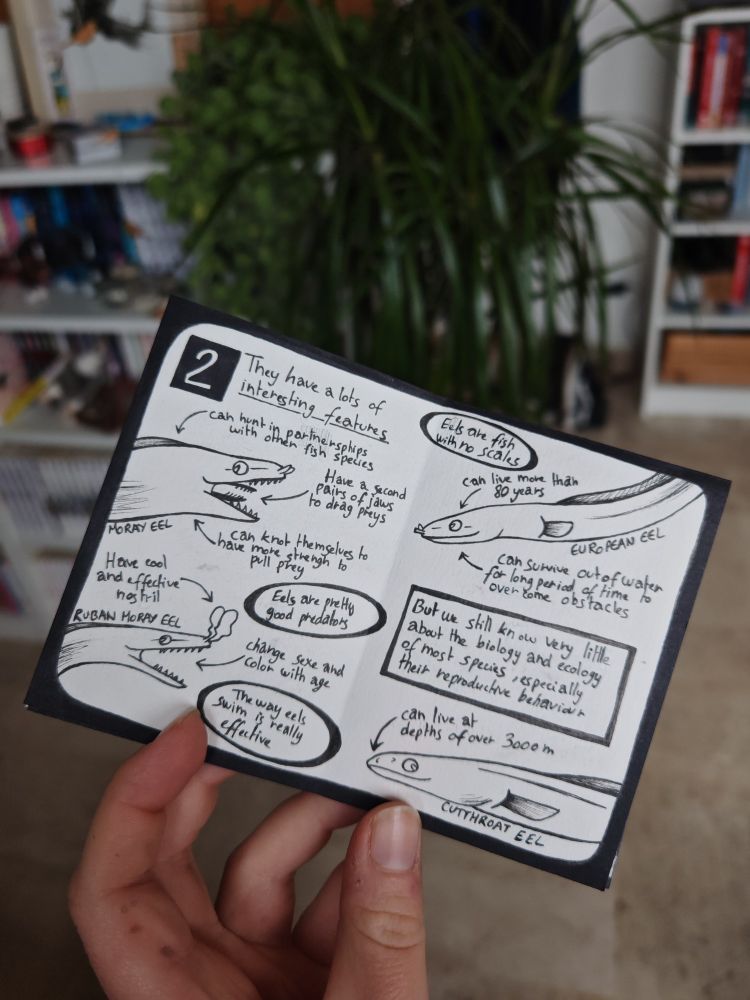 2
They have a lots of
interesting features
can hunt in partnerships
with other fish species
Have a second
pairs of jaws
to drag preys
MORAY EEL
can knot themselves to
have more strengh to
pull prey
Have cool
and effective
nostril
Eels are pretty
good predators
RUBAN MORAY EEL
change sexe and
color with age
The way eels
swim is really
effective
Eels are fish
with no scales
can live more than
80 years
EUROPEAN EEL
can survive out of water
for long period of time to
overcome obstacles
But we still know very little
about the biology and ecology
of most species, especially
their reproductive behaviour
can live at
depths of over 3000 m
CUTTHROAT EEL